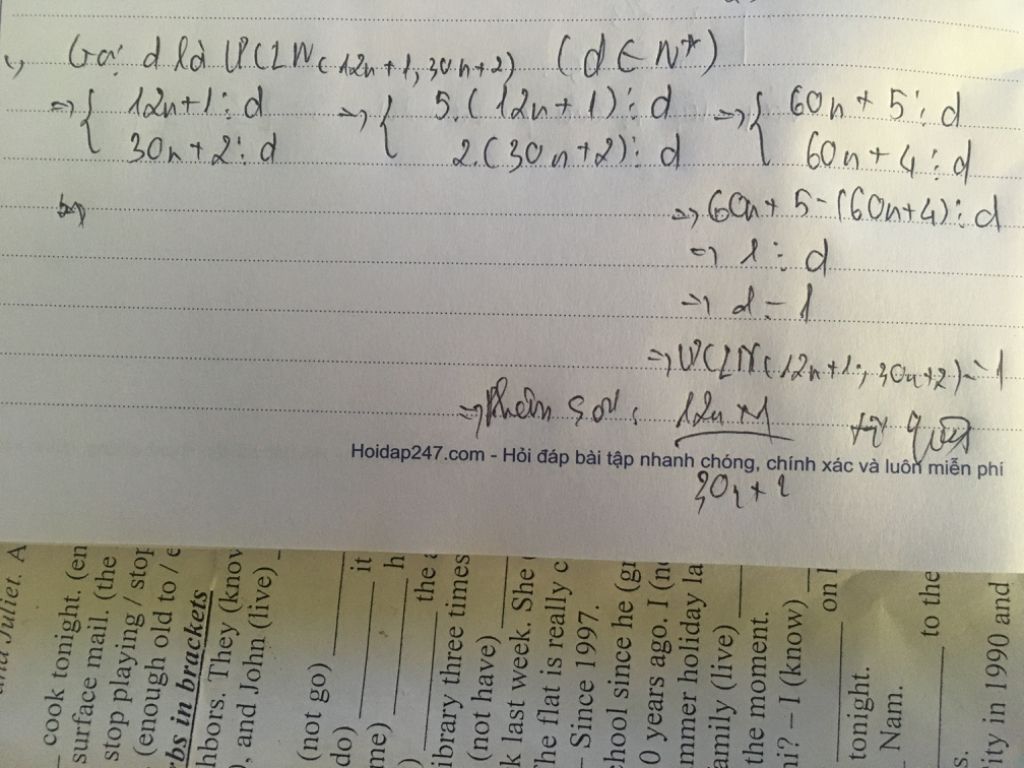 Gọi d là ƯCLN (12n+1, 30n+2) (d ∈ N*)
=> { 12n+1 ⋮ d => { 5.(12n+1) ⋮ d => { 60n+5 ⋮ d
30n+2 ⋮ d 2.(30n+2) ⋮ d 60n+4 ⋮ d
=> 60n+5-(60n+4) ⋮ d
=> 1 ⋮ d
=> d = 1
=> ƯCLN (12n+1; 30n+2) = 1
=> Phân số: 12n+1
Hoidap247.com - Hỏi đáp bài tập nhanh chóng, chính xác và luôn miễn phí
30n+2
and Juliet. A
cook tonight. (en
surface mail. (the
stop playing / stop
(enough old to / e
rbs in brackets
hbors. They (know
), and John (live)
(not go)
do) it
me) h
) the
ibrary three times
(not have)
k last week. She
he flat is really c
– Since 1997.
chool since he (gr
0 years ago. I (n
mmer holiday la
amily (live)
the moment.
hi? – I (know)
on
tonight.
Nam.
to the
s.
ity in 1990 and